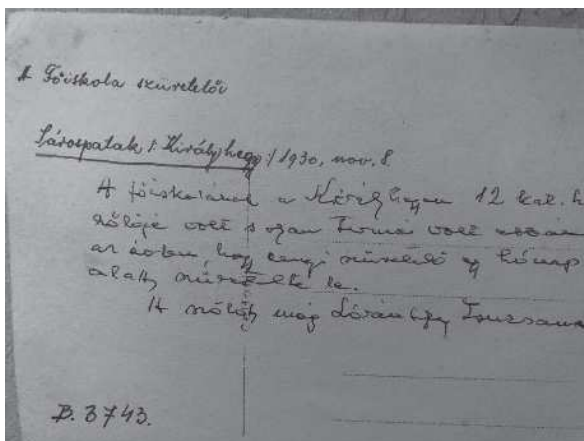 A Főiskola szüretelői
Sárospatak /: Királyhegy :/ 1930, nov. 8.
A főiskolának a Királyhegyen 12 kat. h
szőlője volt s olyan termés volt
az őszben, hogy szüretelő egy hónap
alatt szüretelte le.
A szőlőt még Lórántffy Zsuzsann
B. 3743.